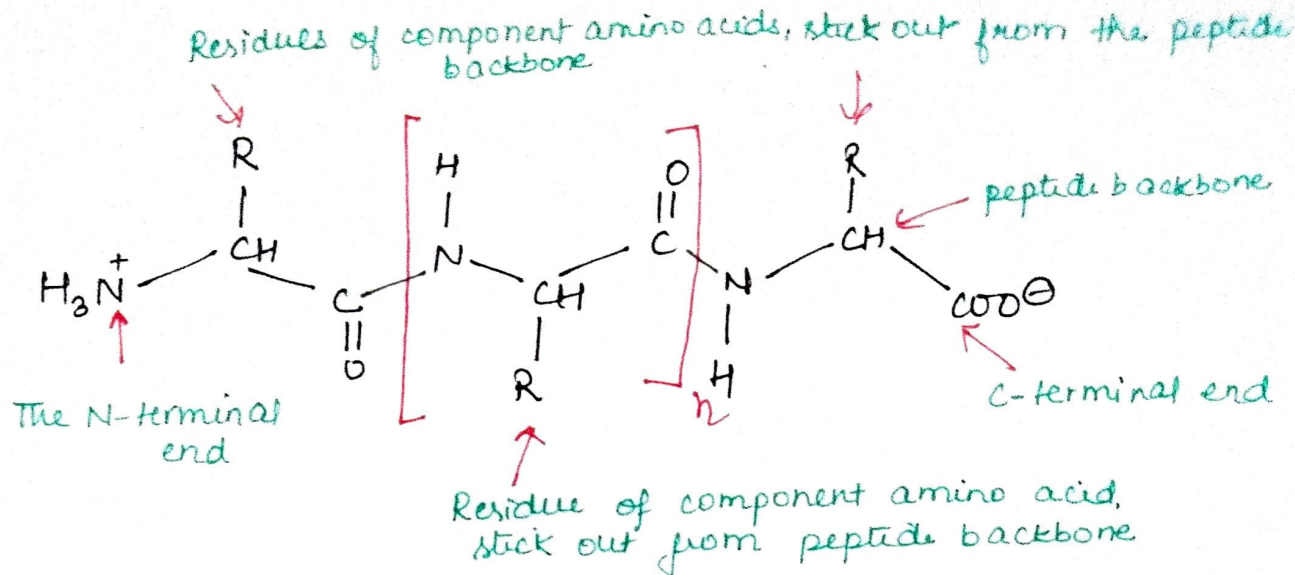 Residues of component amino acids, stick out from the peptide
backbone
R
H
O
R
peptide backbone
H3N+
CH
C
O
N
CH
R
C
n
N
H
CH
COO⊖
The N-terminal
end
C-terminal end
Residue of component amino acid,
stick out from peptide backbone